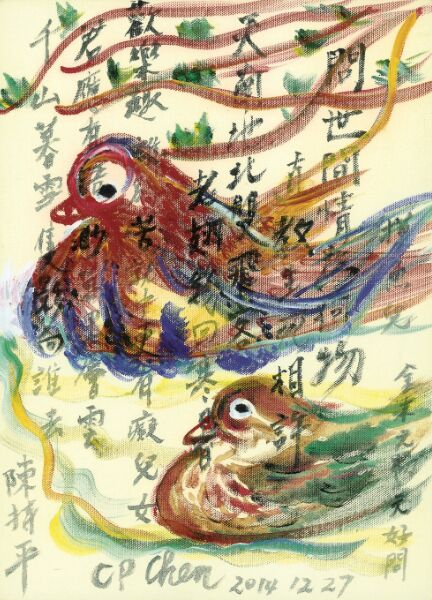 摸魚兒
金末元初元好問
問世間情為何物
直教生死相許
天南地北雙飛客
老翅幾回寒暑
歡樂趣離別苦
就中更有癡兒女
君應有語
渺萬里層雲
千山暮雪隻影向誰去
陳持平
CP Chen 2014 12 27